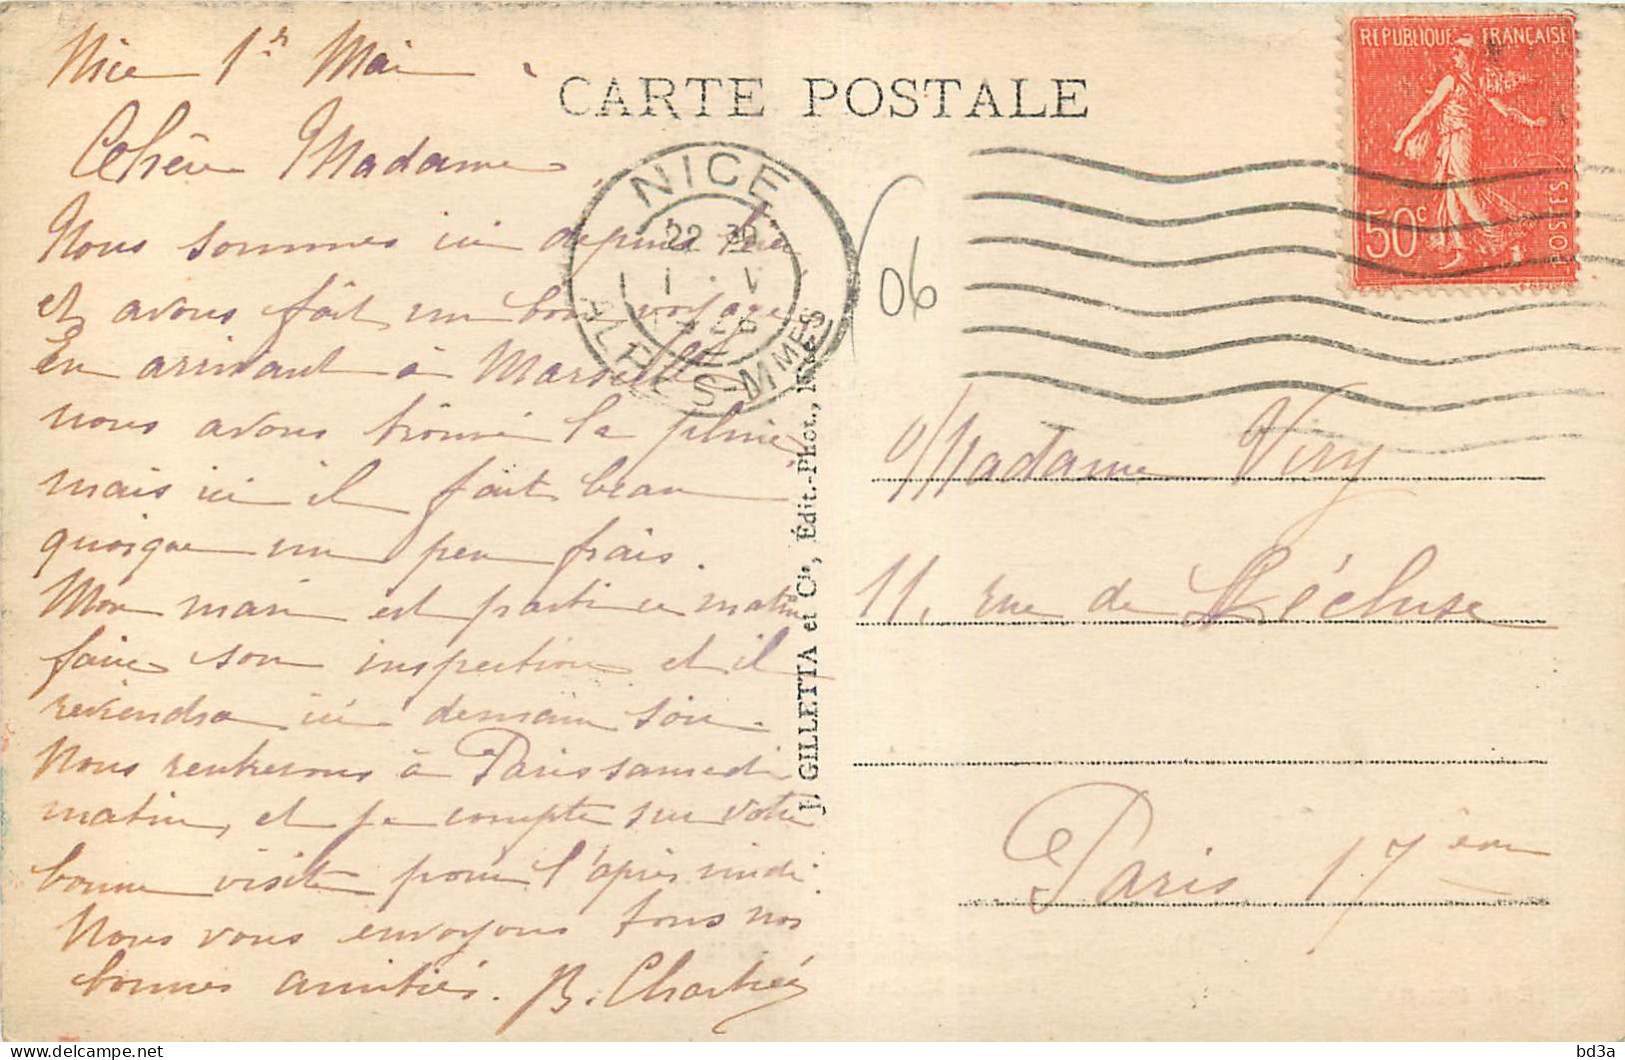 CARTE POSTALE
Nice 1er Mai
Chère Madame,
Nous sommes ici depuis
et avons fait un bon voyage
En arrivant à Marseille
nous avons trouvé la pluie,
mais ici il fait beau
quoique un peu frais.
Mon mari est parti ce matin
faire son inspection et il
reviendra ici demain soir.
Nous rentrerons à Paris samedi
matin, et je compte sur votre
bonne visite pour l'après midi.
Nous vous envoyons tous nos
bonnes amitiés. B. Chartier
J. GILLETTA et Cie, Édit.-Phot., Nice
NICE
22 30
1 · V
ALPES-MMES
06
REPUBLIQUE FRANÇAISE
50c
POSTES
Madame Viry
11, rue de Lécluse
Paris 17ème
bd3a